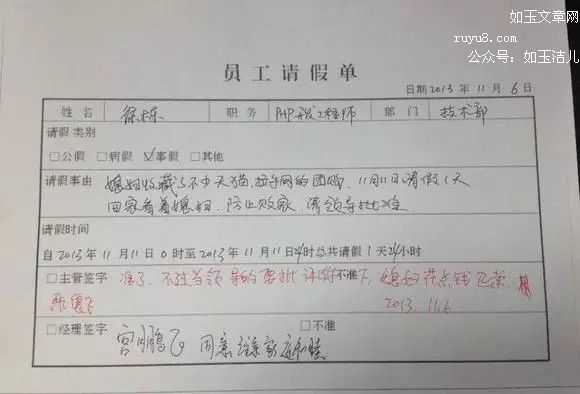 如玉文章网
ruyu8.com
公众号：如玉洁儿
员工请假单
日期 2013 年 11 月 6 日
姓名 徐栋 职务 PHP开发工程师 部门 技术部
请假类别
□公假 □病假 ☑事假 □其他
请假事由 媳妇收藏了不少天猫、拉手网的团购,11月11日请假1天
回家看着媳妇,防止败家,请领导批准
请假时间
自 2013 年 11 月 11 日 0 时至 2013 年 11 月 11 日 24 时总共请假 1 天 24 小时
□主管签字 准了,不过当领导的要批评你不准下,媳妇花点钱
2013.11.6
□经理签字 宫鹏飞 同意 家庭和睦 □不准